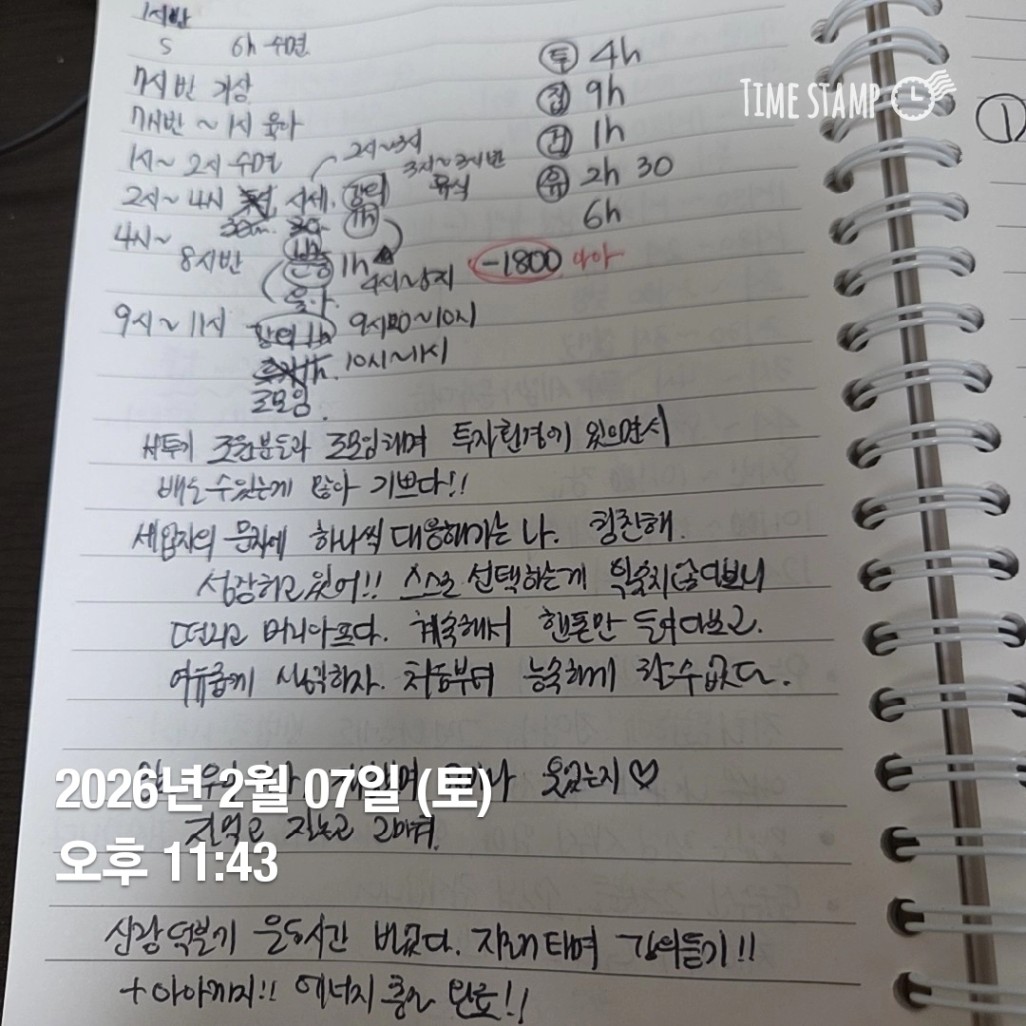 1시반
S 6h 수면
7시 반 기상
7시반 ~ 1시 육아
1시~ 2시 수면
2시~3시
3시~3시반 휴식
2시~ 4시 시세. 강의
1h
4시~
8시반 1h
4시~5시
육아.
9시~ 11시 강의 1h 9시~10시
1h. 10시~11시
조모임.
투 4h
집 9h
건 1h
유 2h 30
6h
-1800
TIME STAMP
1
조원분들과 조모임하며 투자환경에 있으면서
배울 수있는게 많아 기쁘다!!
세입자의 문자에 하나씩 대응해가는 나. 칭찬해.
성장하고 있어!! 스스로 선택하는게 익숙치않다보니
떨리고 머리아프다. 계속해서 핸폰만 들여다보고.
여유롭게 생각하자. 처음부터 능숙하게 할수없다.
웃었는지♡
고마워.
2026년 2월 07일 (토)
오후 11:43
신랑덕분에 운동시간 벌었다. 자전거타며 강의듣기!!
+아아까지!! 에너지 충전 완료!!